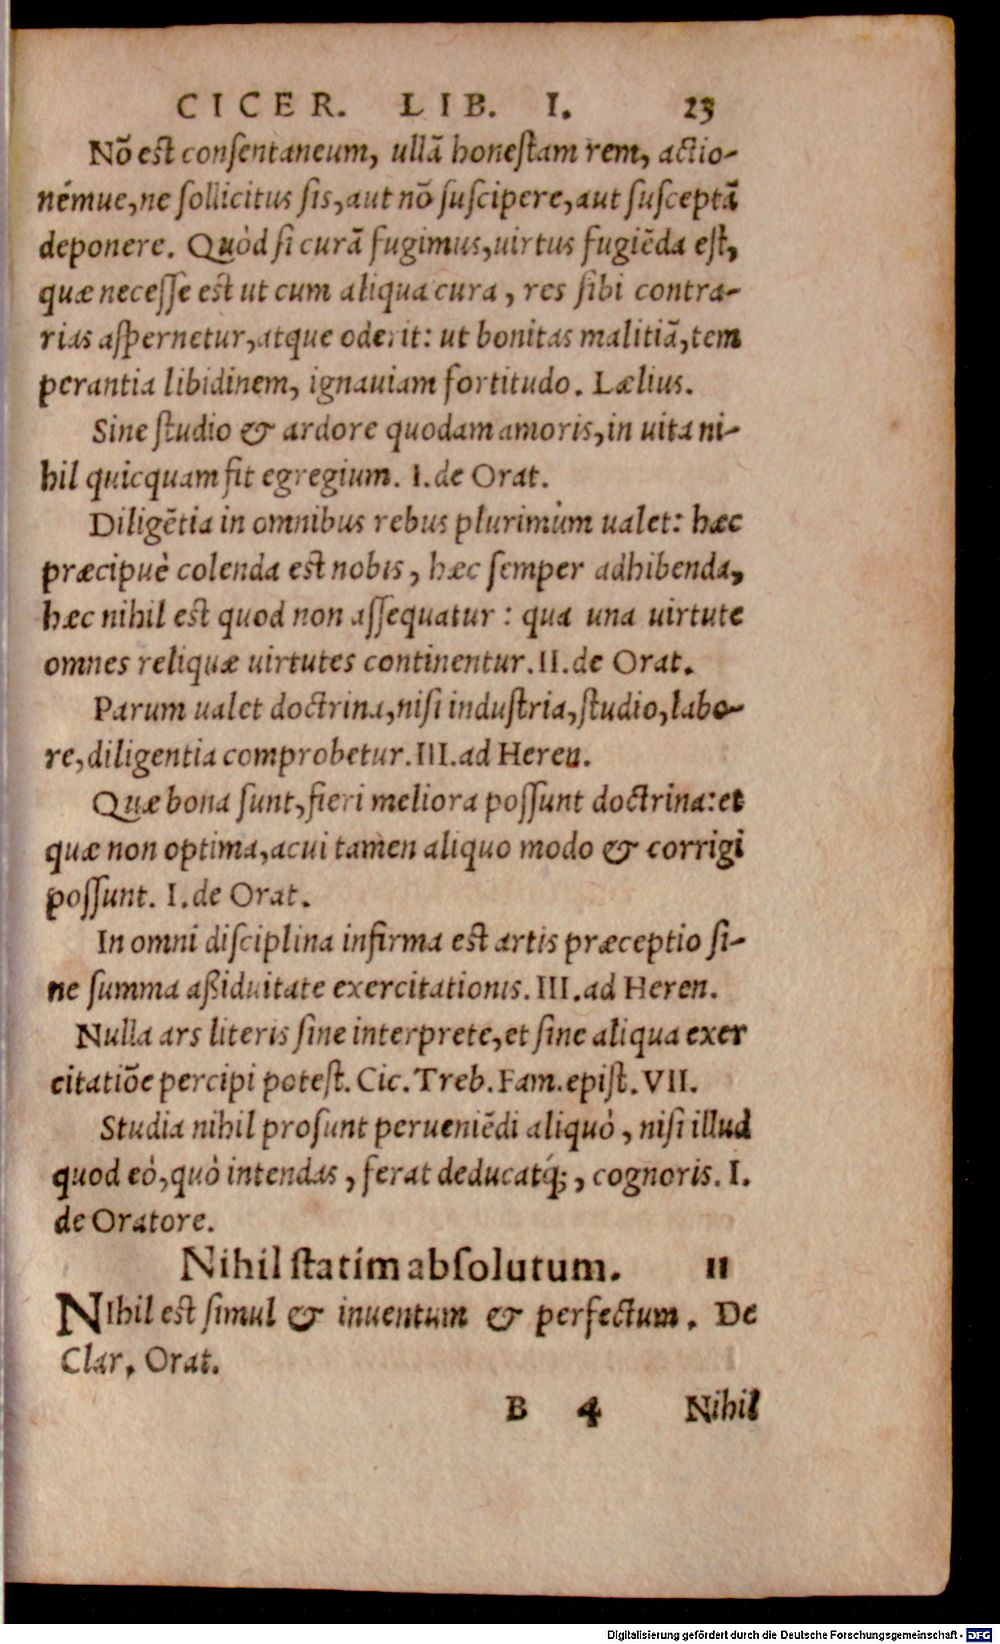 CICER. LIB. I. 23
Nõ est consentaneum, ullã honestam rem, actio-
némue, ne sollicitus sis, aut nõ suscipere, aut susceptã
deponere. Quòd si curã fugimus, uirtus fugiẽda est,
quæ necesse est ut cum aliqua cura, res sibi contra-
rias aspernetur, atque oderit: ut bonitas malitiã, tem
perantia libidinem, ignauiam fortitudo. Lælius.
Sine studio & ardore quodam amoris, in uita ni-
hil quicquam fit egregium. I. de Orat.
Diligẽtia in omnibus rebus plurimùm ualet: hæc
præcipuè colenda est nobis, hæc semper adhibenda,
hæc nihil est quod non assequatur: qua una uirtute
omnes reliquæ uirtutes continentur. II. de Orat.
Parum ualet doctrina, nisi industria, studio, labo-
re, diligentia comprobetur. III. ad Heren.
Quæ bona sunt, fieri meliora possunt doctrina: et
quæ non optima, acui tamen aliquo modo & corrigi
possunt. I. de Orat.
In omni disciplina infirma est artis præceptio si-
ne summa aßiduitate exercitationis. III. ad Heren.
Nulla ars literis sine interprete, et sine aliqua exer
citatiõe percipi potest. Cic. Treb. Fam. epist. VII.
Studia nihil prosunt perueniẽdi aliquò, nisi illud
quod eò, quò intendas, ferat deducatq́;, cognoris. I.
de Oratore.
Nihil statim absolutum. 11
NIhil est simul & inuentum & perfectum. De
Clar. Orat.
B 4 Nihil
Digitalisierung gefördert durch die Deutsche Forschungsgemeinschaft - DFG